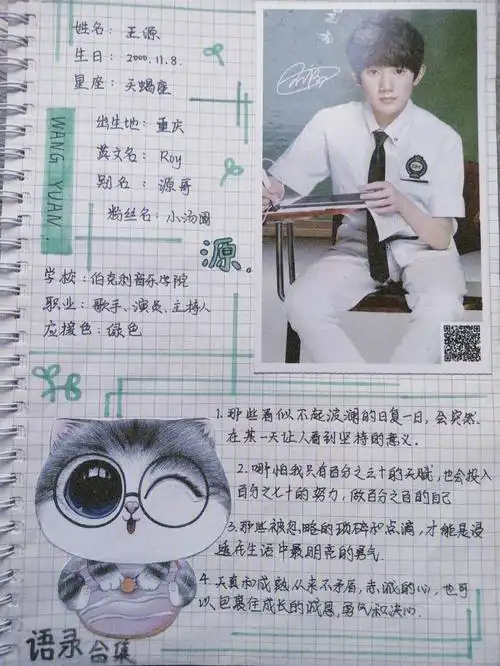 姓名：王源
生日：2000.11.8.
星座：天蝎座
WANG YUAN
出生地：重庆
英文名：Roy
别名：源哥
粉丝名：小汤圆
源.
学校：伯克利音乐学院
职业：歌手、演员、主持人
应援色：绿色
1.那些看似不起波澜的日复一日，会突然
在某一天让人看到坚持的意义.
2.哪怕我只有百分之三十的天赋，也会投入
百分之七十的努力，做百分之百的自己
3.那些被忽略的琐碎和点滴，才能是浸
透在生活中最明亮的勇气.
4.天真和成熟从来不矛盾，赤诚的心，也可
以包裹住成长的诚恳，勇气和决心.
语录合集